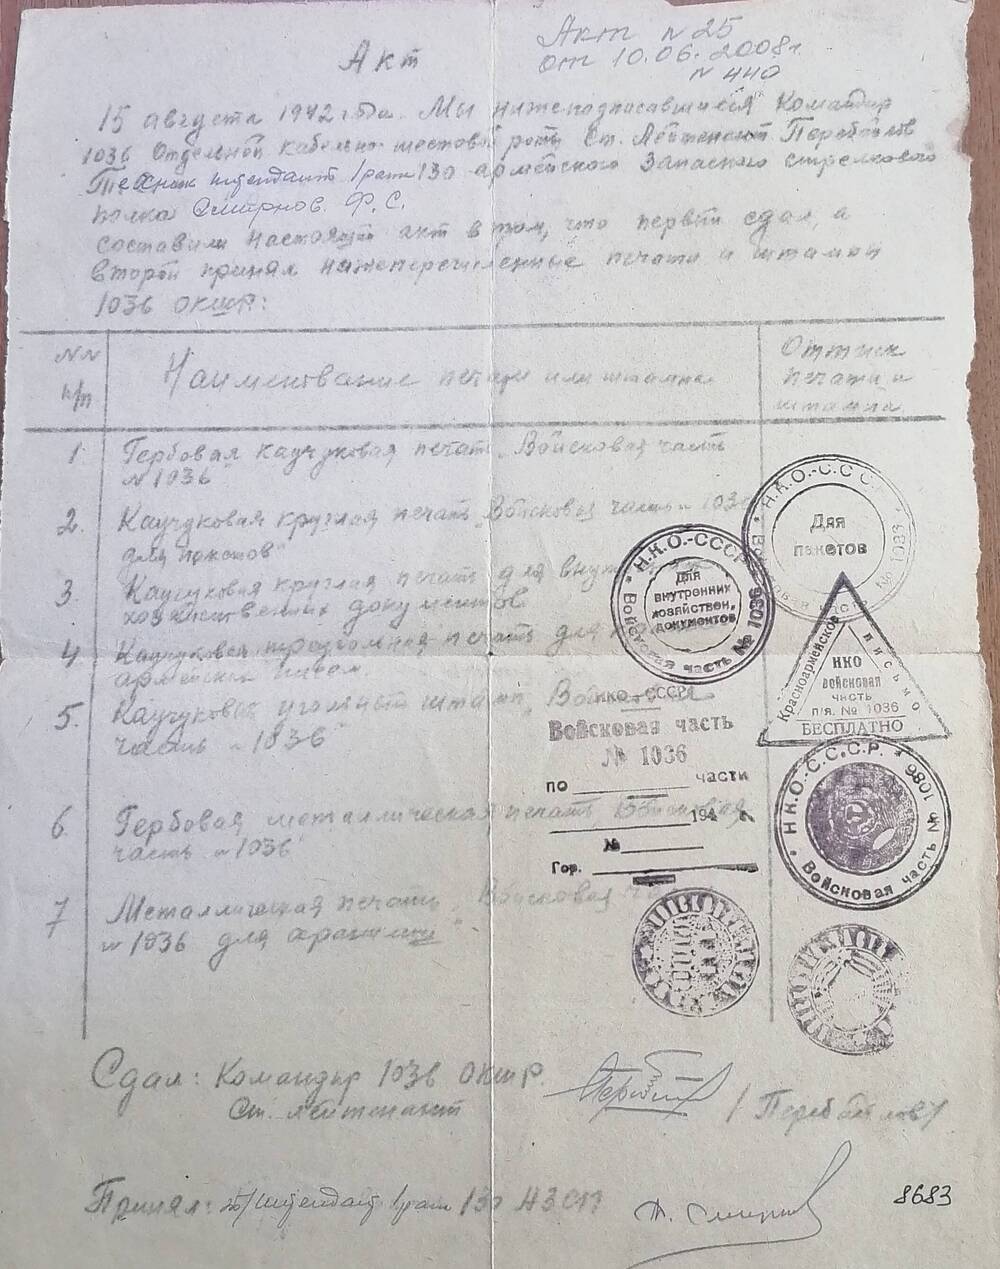 Акт
Акт N 25
от 10.06.2008г.
N 440
15 августа 1942 года. Мы нижеподписавшиеся Командир
1036 Отдельной кабельно-шестовой роты Ст. Лейтенант
Техник интендант 1 ранга 130 армейского Запасного стрелкового
полка Смирнов Ф.С.
составили настоящий акт в том, что первый сдал, а
второй принял нижеперечисленные печати и штампы
1036 ОКШР:
NN п/п
Наименование печати или штампа
Оттиск печати и штампа
1 Гербовая каучуковая печать „Войсковая часть
N 1036"
2. Каучуковая круглая печать „Войсковая часть N 1036
для пакетов"
3. Каучуковая круглая печать для внут
хозяйственных документов
4 Каучуковая треугольная печать для
армейских писем
5. Каучуковый угловой штамп „Войсковая
часть N 1036"
6. Гербовая металлическая печать Войсковая
часть N 1036"
7 Металлическая печать „Войсковая ч
N 1036 для
Н.К.О.-С.С.С.Р.
Войсковая часть № 1036
Для
пакетов
Н.К.О.-СССР
Войсковая часть № 1036
Для
внутренних
хозяйствен.
документов
Красноармейское
письмо
НКО
войсковая
часть
п/я. № 1036
БЕСПЛАТНО
НКО СССР
Войсковая часть
№ 1036
по части
194 г.
№
Гор.
Н.К.О.-С.С.С.Р.
Войсковая часть № 1036
Сдал: Командир 1036 ОКШР.
Ст. лейтенант
Принял: т/интендант 1 ранг 130 АЗСП
8683